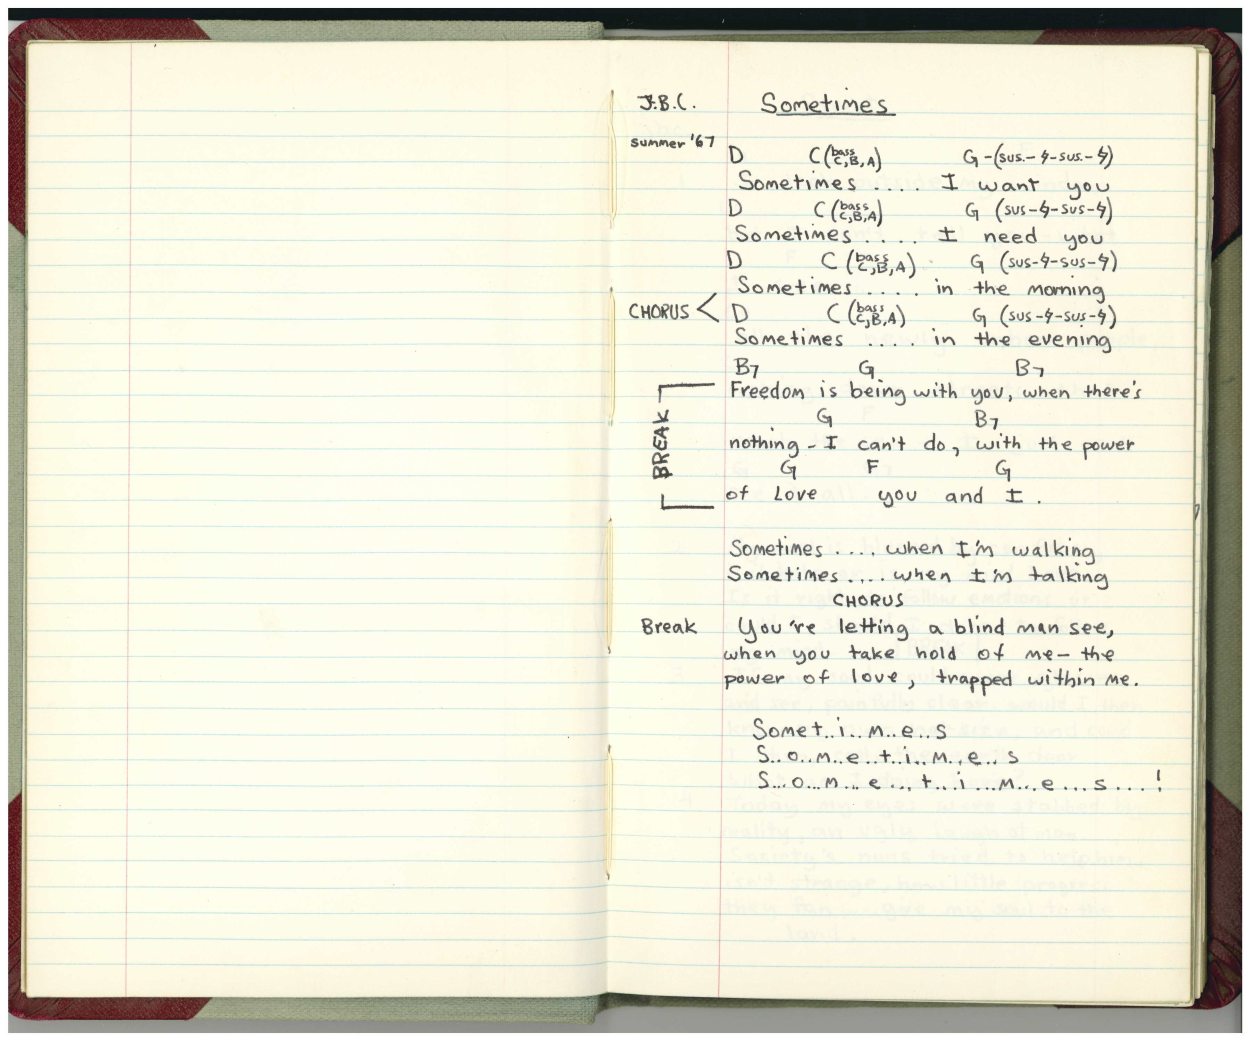 J.B.C. Sometimes
summer '67
D C (bass C, B, A) G - (sus. - 4 - sus. - 4)
Sometimes .... I want you
D C (bass C, B, A) G (sus - 4 - sus - 4)
Sometimes .... I need you
D C (bass C, B, A) G (sus - 4 - sus - 4)
Sometimes .... in the morning
CHORUS < D C (bass C, B, A) G (sus - 4 - sus - 4)
Sometimes .... in the evening
B7 G B7
Freedom is being with you, when there's
G B7
BREAK
nothing - I can't do, with the power
G F G
of Love you and I.
Sometimes .... when I'm walking
Sometimes .... when I'm talking
CHORUS
Break You're letting a blind man see,
when you take hold of me - the
power of love, trapped within me.
Somet..i..m..e..s
S..o..m..e..t..i..m..e..s
S...o...m...e...t...i...m...e...s...!